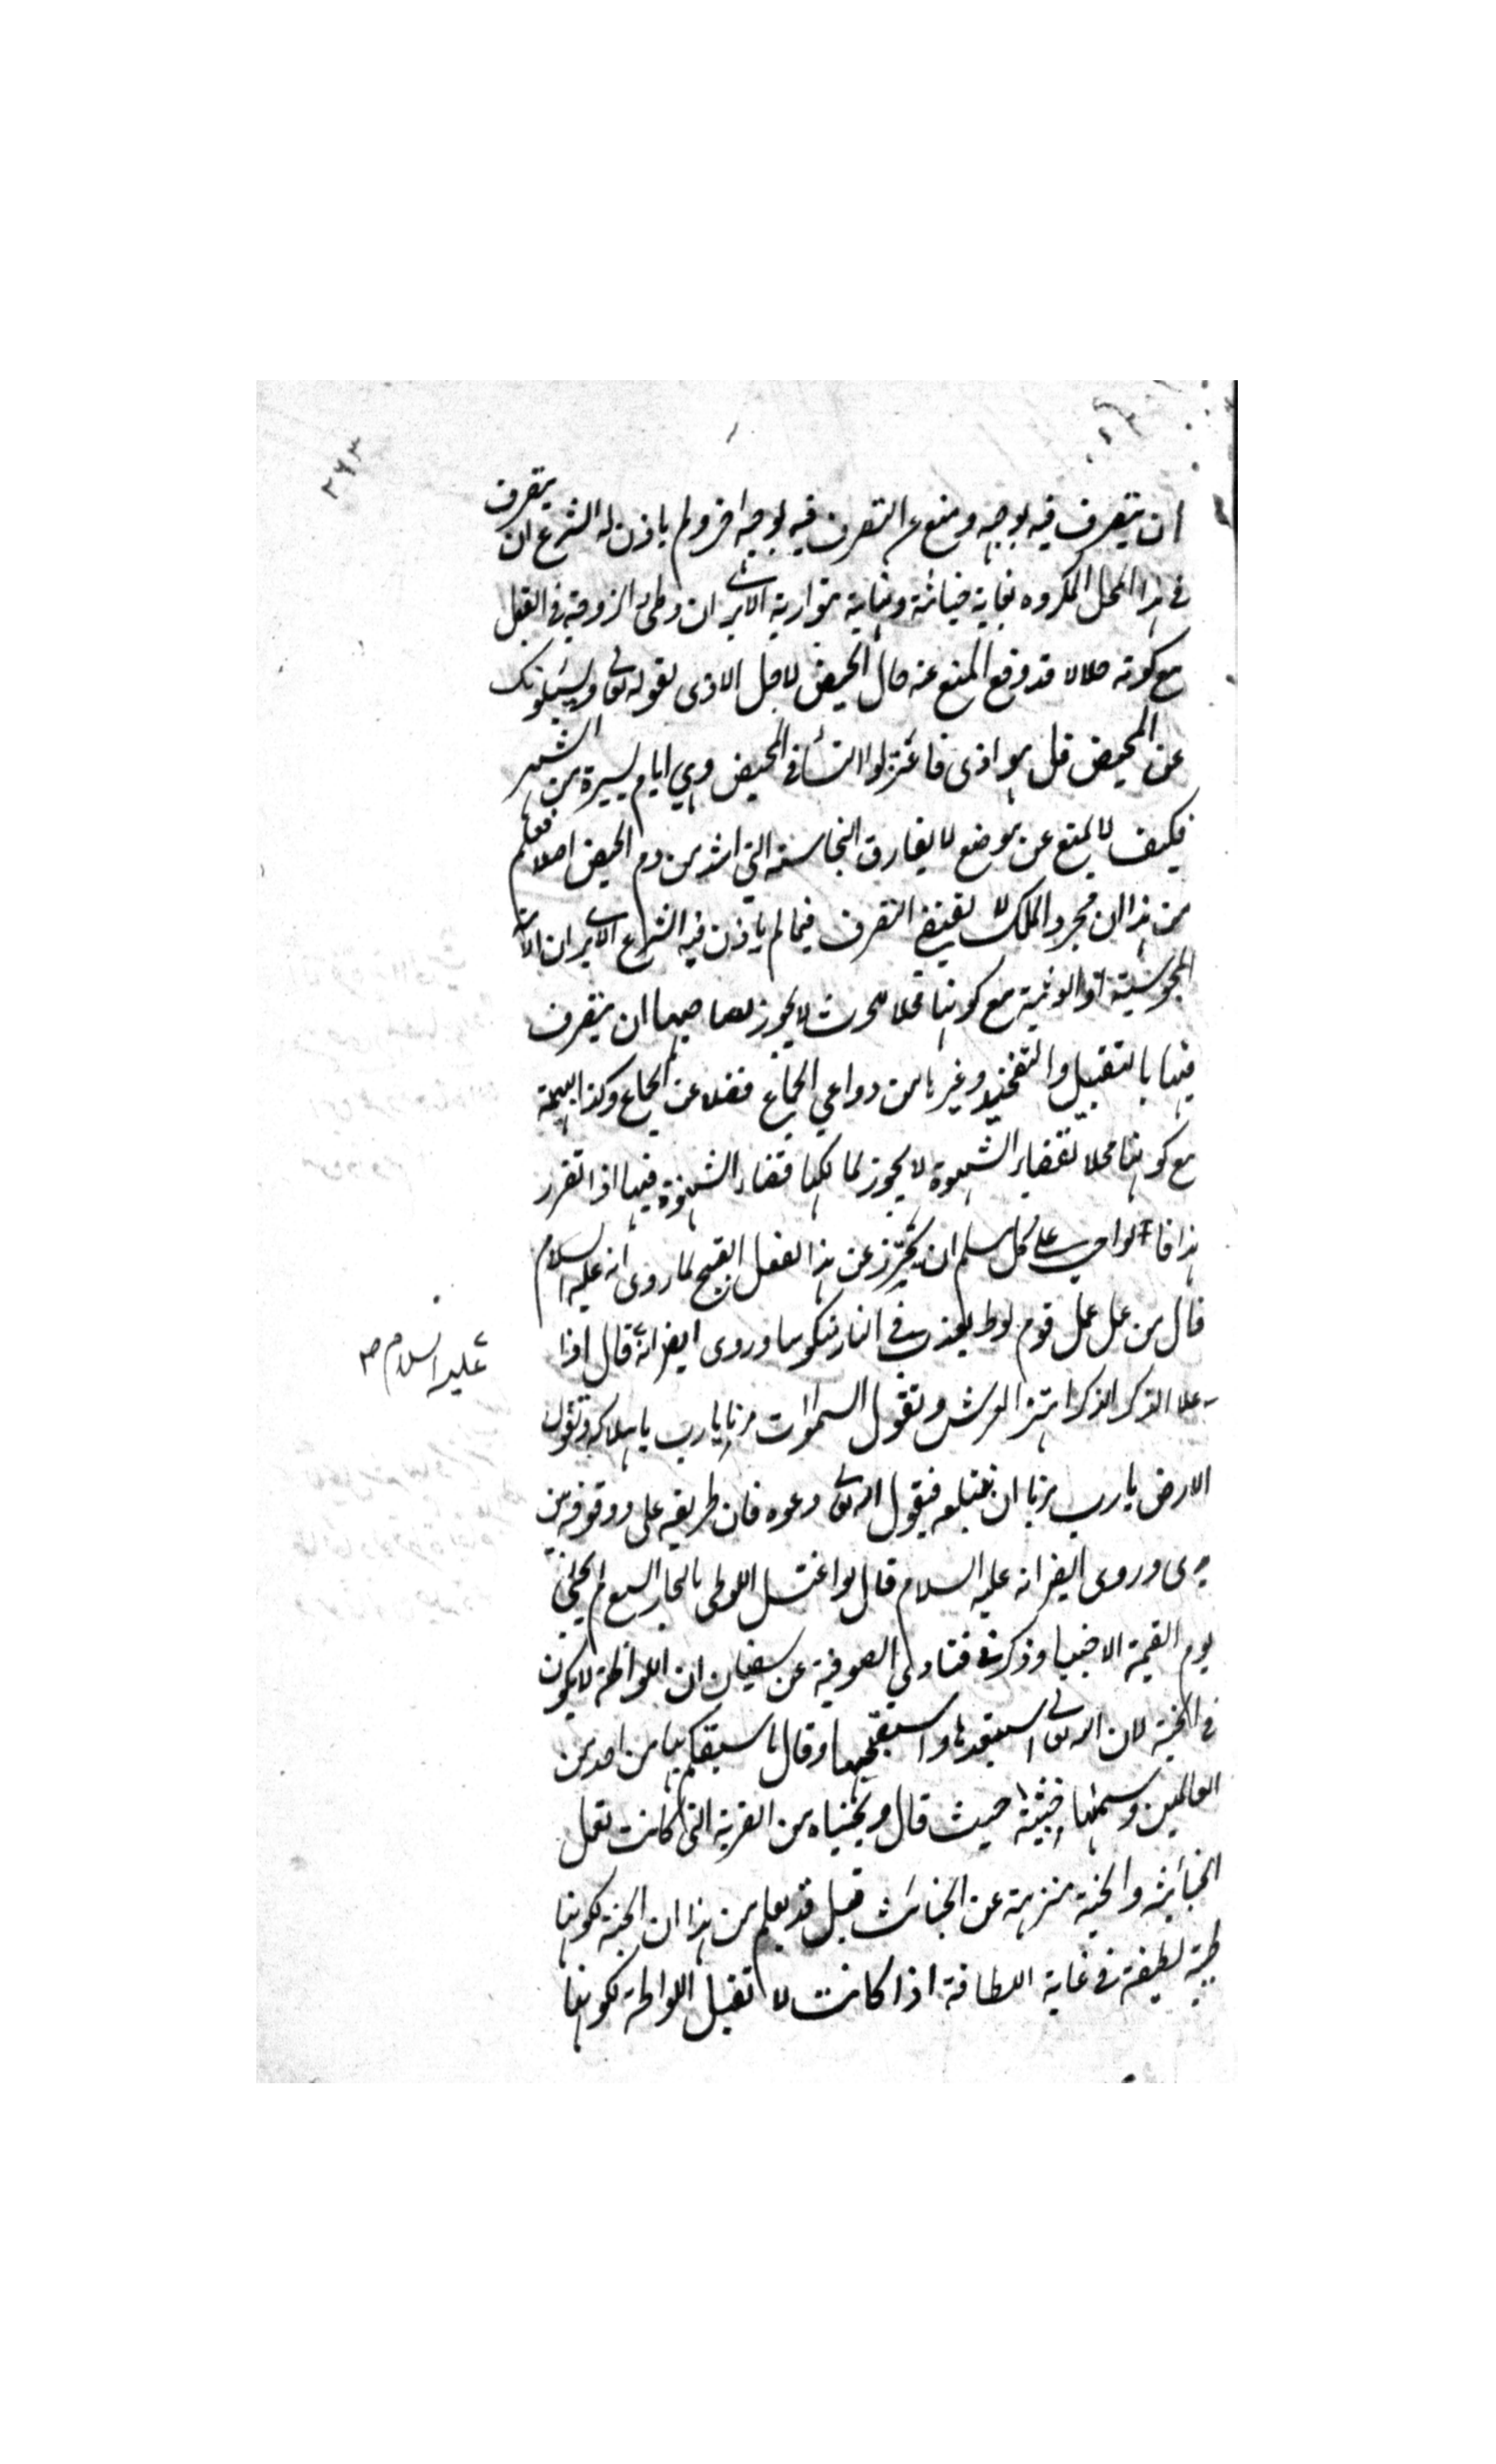 ٢٦٣
ان يتصرف فيه بوجه ومنع عن التصرف فيه بوجه اخر ولم ياذن له الشرع ان يتصرف
في هذا المحل المكروه لغاية خباثته ونهاية الا يرى ان وطئ الزوجة في القبل
مع كونه حلالا قد وقع المنع عنه حال الحيض لاجل الاذى لقوله تعالى ويسئلونك
عن المحيض قل هو اذى فاعتزلوا النساء في المحيض وهي ايام يسيرة من الشهر
فكيف لا يمنع عن موضع لا يفارق النجاسة التي اشد من دم الحيض اصلا فعلم
من هذا ان مجرد الملك لا يقتضي التصرف فيما لم ياذن فيه الشرع الا يرى ان الامة
المجوسية او الوثنية مع كونها محلا للحرث لا يجوز لصاحبها ان يتصرف
فيها بالتقبيل والتفخيذ وغيرها من دواعي الجماع فضلا عن الجماع وكذا البهيمة
مع كونها محلا لقضاء الشهوة لا يجوز لمالكها قضاء الشهوة فيها اذا تقرر
هذا فالواجب على كل مسلم ان يتحرز عن هذا الفعل القبيح لما روى انه عليه السلام
قال من عمل عمل قوم لوط يعذب في النار منكوسا وروى ايضا انه قال اذا
عليه السلام صح
علا الذكر الذكر اهتز العرش وتقول السموات مرنا يا رب باهلاكه وتقول
الارض يا رب مرنا ان نبتلعه فيقول الله تعالى دعوه فان طريقه علي ووقوفه بين
يدي وروى ايضا انه عليه السلام قال لو اغتسل اللوطي بالبحار السبع لم يجئ
يوم القيمة الا جنبا وذكر في فتاوى الصوفية عن سفيان ان اللواطة لا يكون
في الجنة لان الله تعالى استبعدها واستقبحها وقال ما سبقكم بها من احد من
العالمين وسماها خبيثة حيث قال ونجيناه من القرية التي كانت تعمل
الخبائث والجنة منزهة عن الخبائث قيل قد يعلم من هذا ان الجنة لكونها
طيبة لطيفة في غاية اللطافة اذا كانت لا تقبل اللواطة لكونها